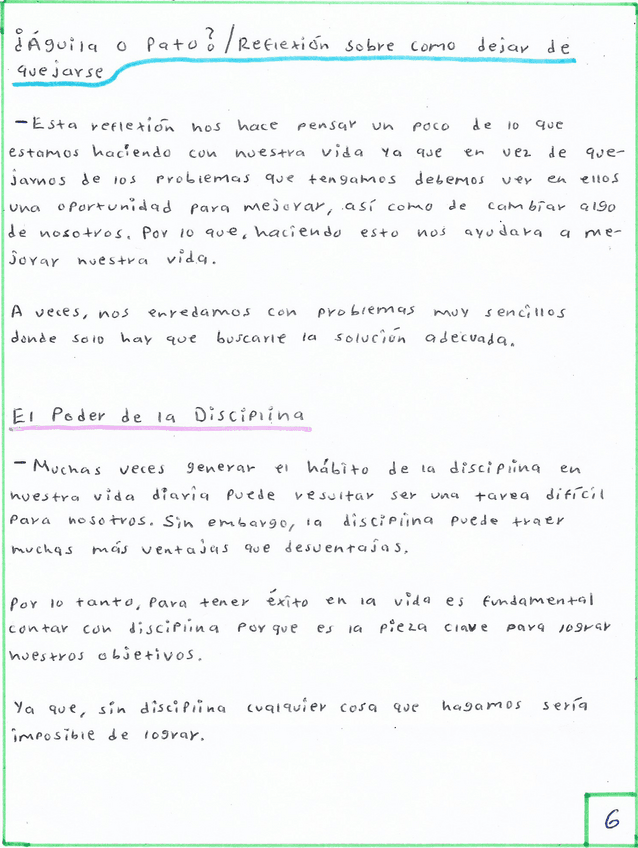 ¿Águila o Pato?/Reflexión sobre como dejar de
quejarse
- Esta reflexión nos hace pensar un poco de lo que
estamos haciendo con nuestra vida ya que en vez de que-
jarnos de los problemas que tengamos debemos ver en ellos
una oportunidad para mejorar, así como de cambiar algo
de nosotros. Por lo que, haciendo esto nos ayudara a me-
jorar nuestra vida.
A veces, nos enredamos con problemas muy sencillos
donde solo hay que buscarle la solución adecuada.
El Poder de la Disciplina
- Muchas veces generar el hábito de la disciplina en
nuestra vida diaria puede resultar ser una tarea difícil
para nosotros. Sin embargo, la disciplina puede traer
muchas más ventajas que desventajas.
Por lo tanto, para tener éxito en la vida es fundamental
contar con disciplina porque es la pieza clave para lograr
nuestros objetivos.
Ya que, sin disciplina cualquier cosa que hagamos sería
imposible de lograr.
6